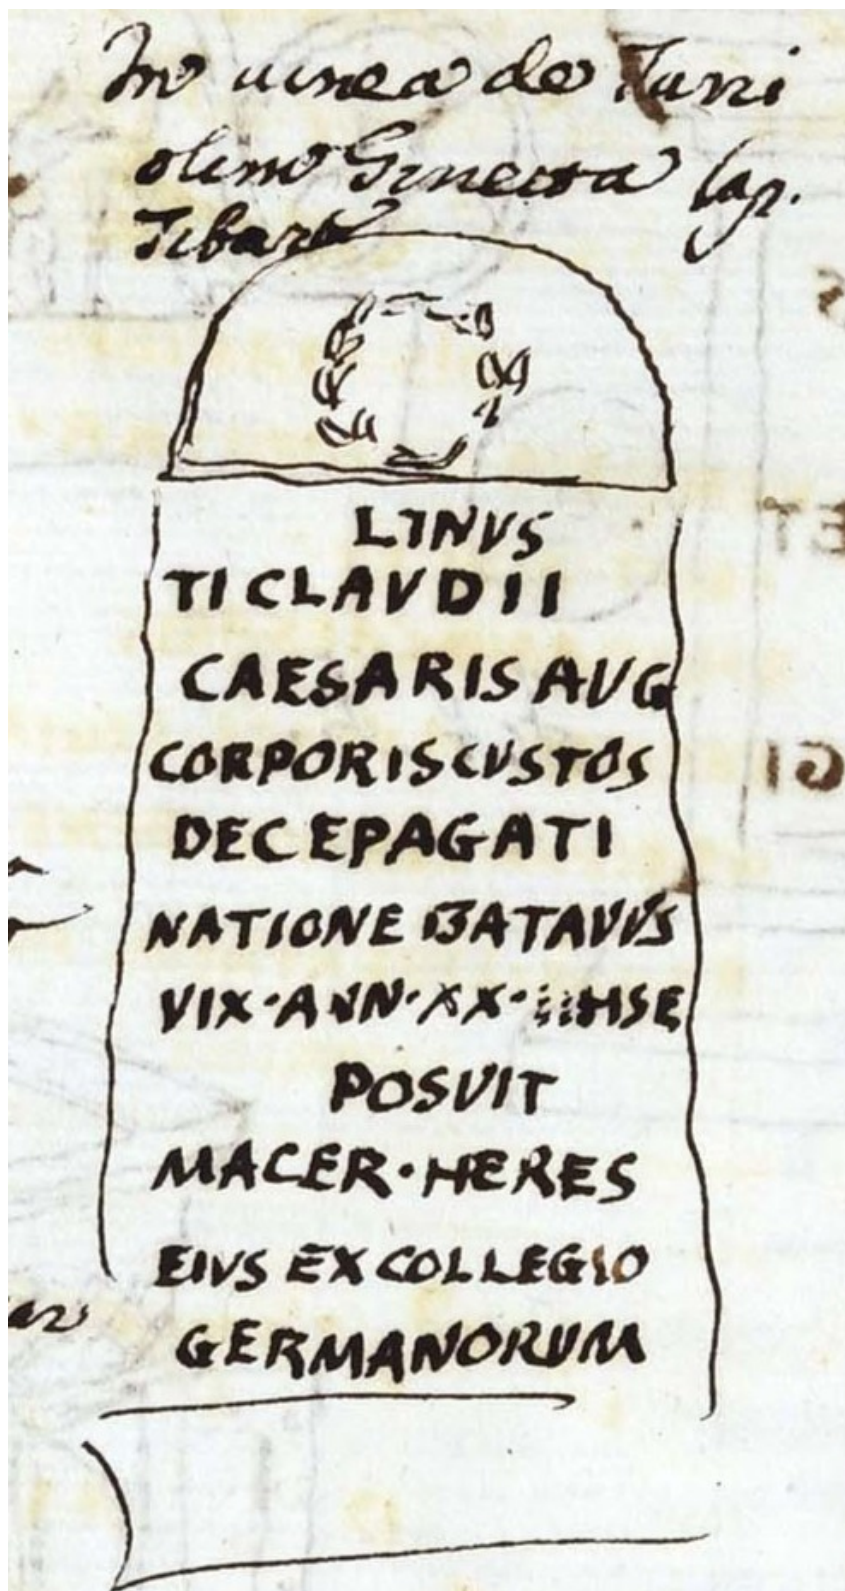 In vinea de
olim lap.
LINVS
TI CLAVDII
CAESARIS AVG
CORPORIS CVSTOS
DEC EPAGATI
NATIONE BATAVVS
VIX·ANN·XX· HSE
POSVIT
MACER·HERES
EIVS EX COLLEGIO
GERMANORVM
ET
GI